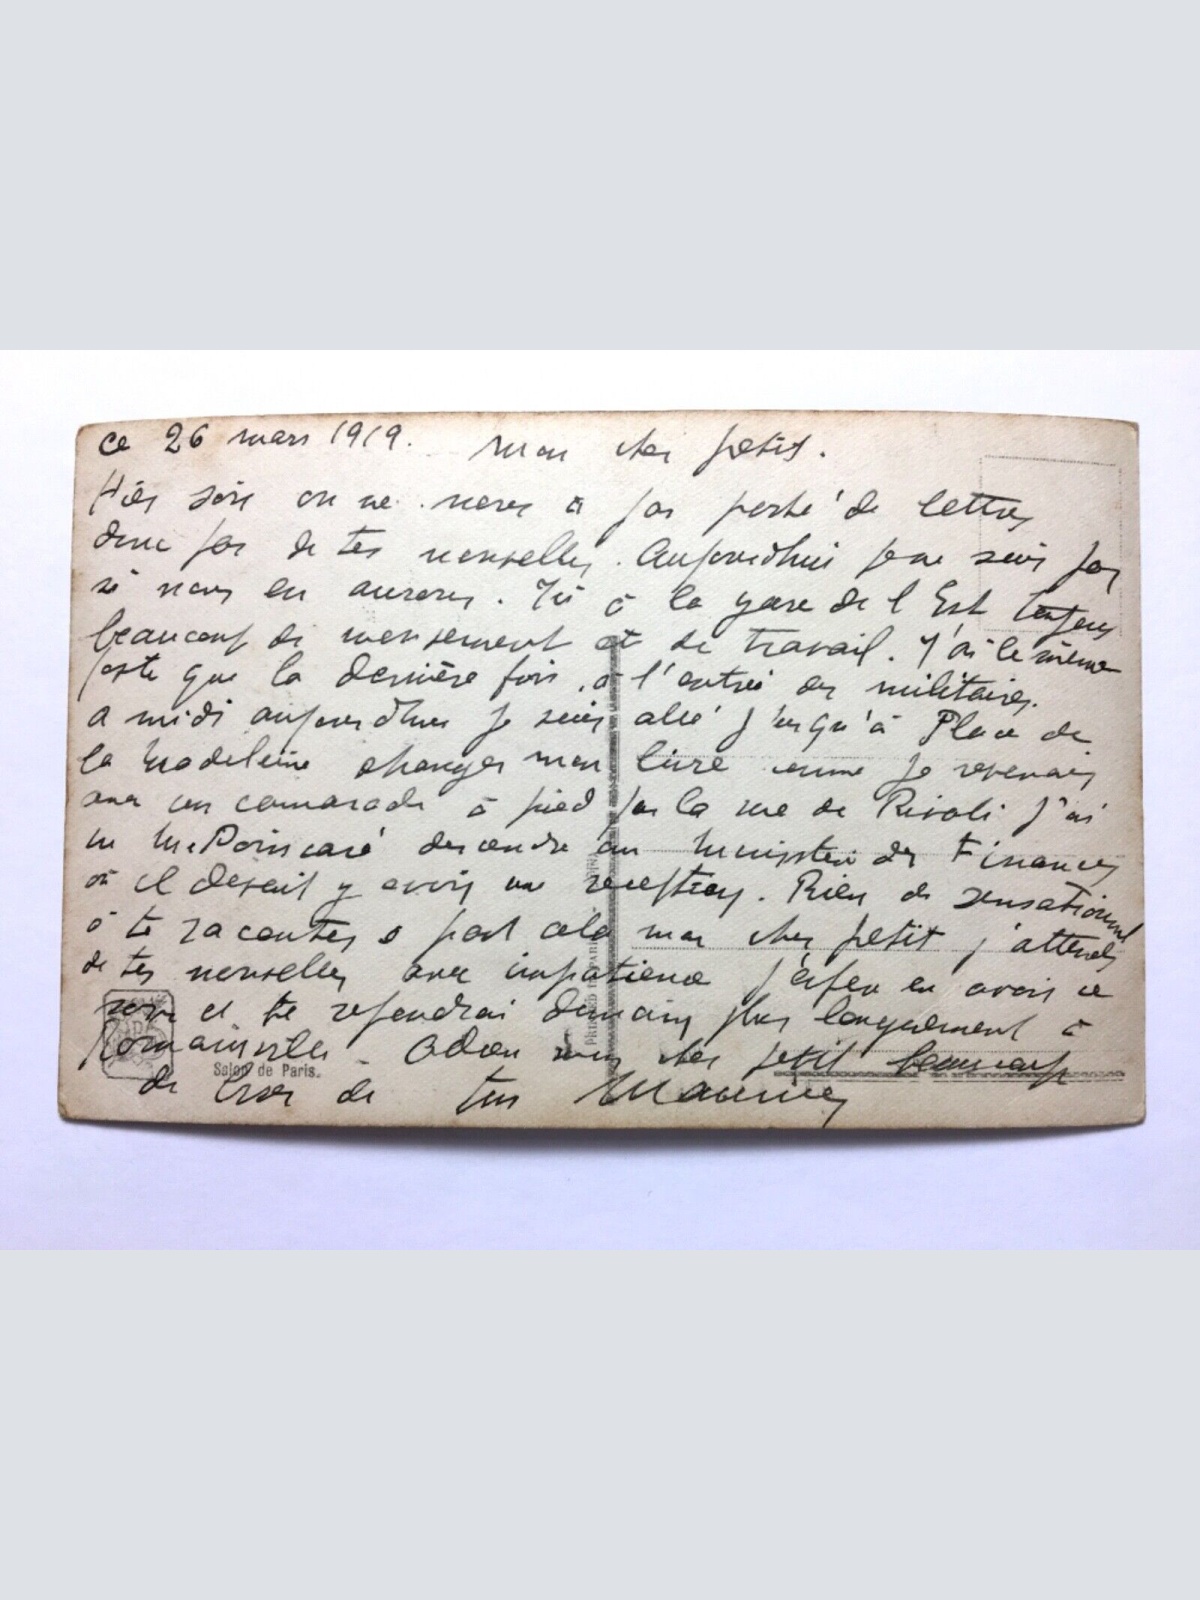 ce 26 mars 1919. Mon cher petit.
Hier soir on ne nous a pas porté de lettres
donc pas de tes nouvelles. Aujourdhui je ne sais pas
si nous en aurons. Ici à la gare de l'Est toujours
beaucoup de mouvement et de travail. J'ai le même
poste que la dernière fois, à l'entrée des militaires.
a midi aujourdhui je suis allé j'usqu'à Place de
la Madeleine changer mon livre comme je revenais
avec un camarade à pied par la rue de Rivoli j'ai
vu Mr Poincaré descendre au Ministère des Finances
où il devait y avoir une réception. Rien de sensationnel
à te raconter à part cela mon cher petit j'attends
de tes nouvelles avec impatience j'espère en avoir ce
soir et te répondrai demain plus longuement à
Romainville. Adieu mon cher petit beaucoup
de de ton Maurice
Salon de Paris.
PRINTED IN PARIS